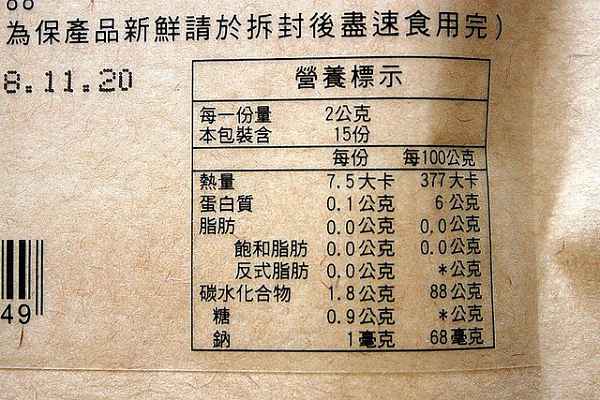 為保產品新鮮請於拆封後盡速食用完)
8.11.20
營養標示
每一份量 2公克
本包裝含 15份
每份 每100公克
熱量 7.5大卡 377大卡
蛋白質 0.1公克 6公克
脂肪 0.0公克 0.0公克
飽和脂肪 0.0公克 0.0公克
反式脂肪 0.0公克 *公克
碳水化合物 1.8公克 88公克
糖 0.9公克 *公克
鈉 1毫克 68毫克
49